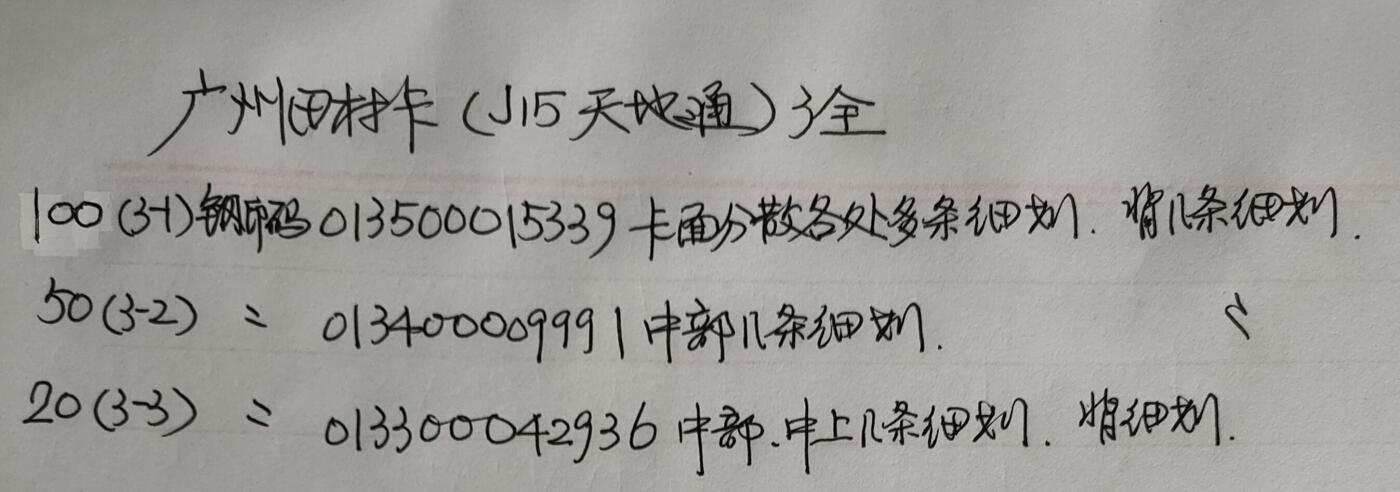 广州田村卡(J15天地通)3全
100(3-1)钢印码013500015339卡面分散各处多条细划.背几条细划.
50(3-2) = 013400009991中部几条细划.
20(3-3) = 013300042936中部.中上几条细划.背细划.